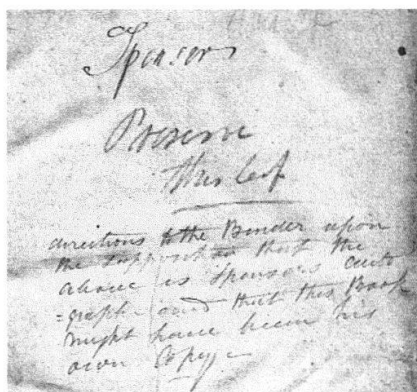 Spensors
Preserve
this leaf
directions to the Binder upon
the supposition that the
above is Spensors auto
=graph - and that this Book
might have been his
own Copy -